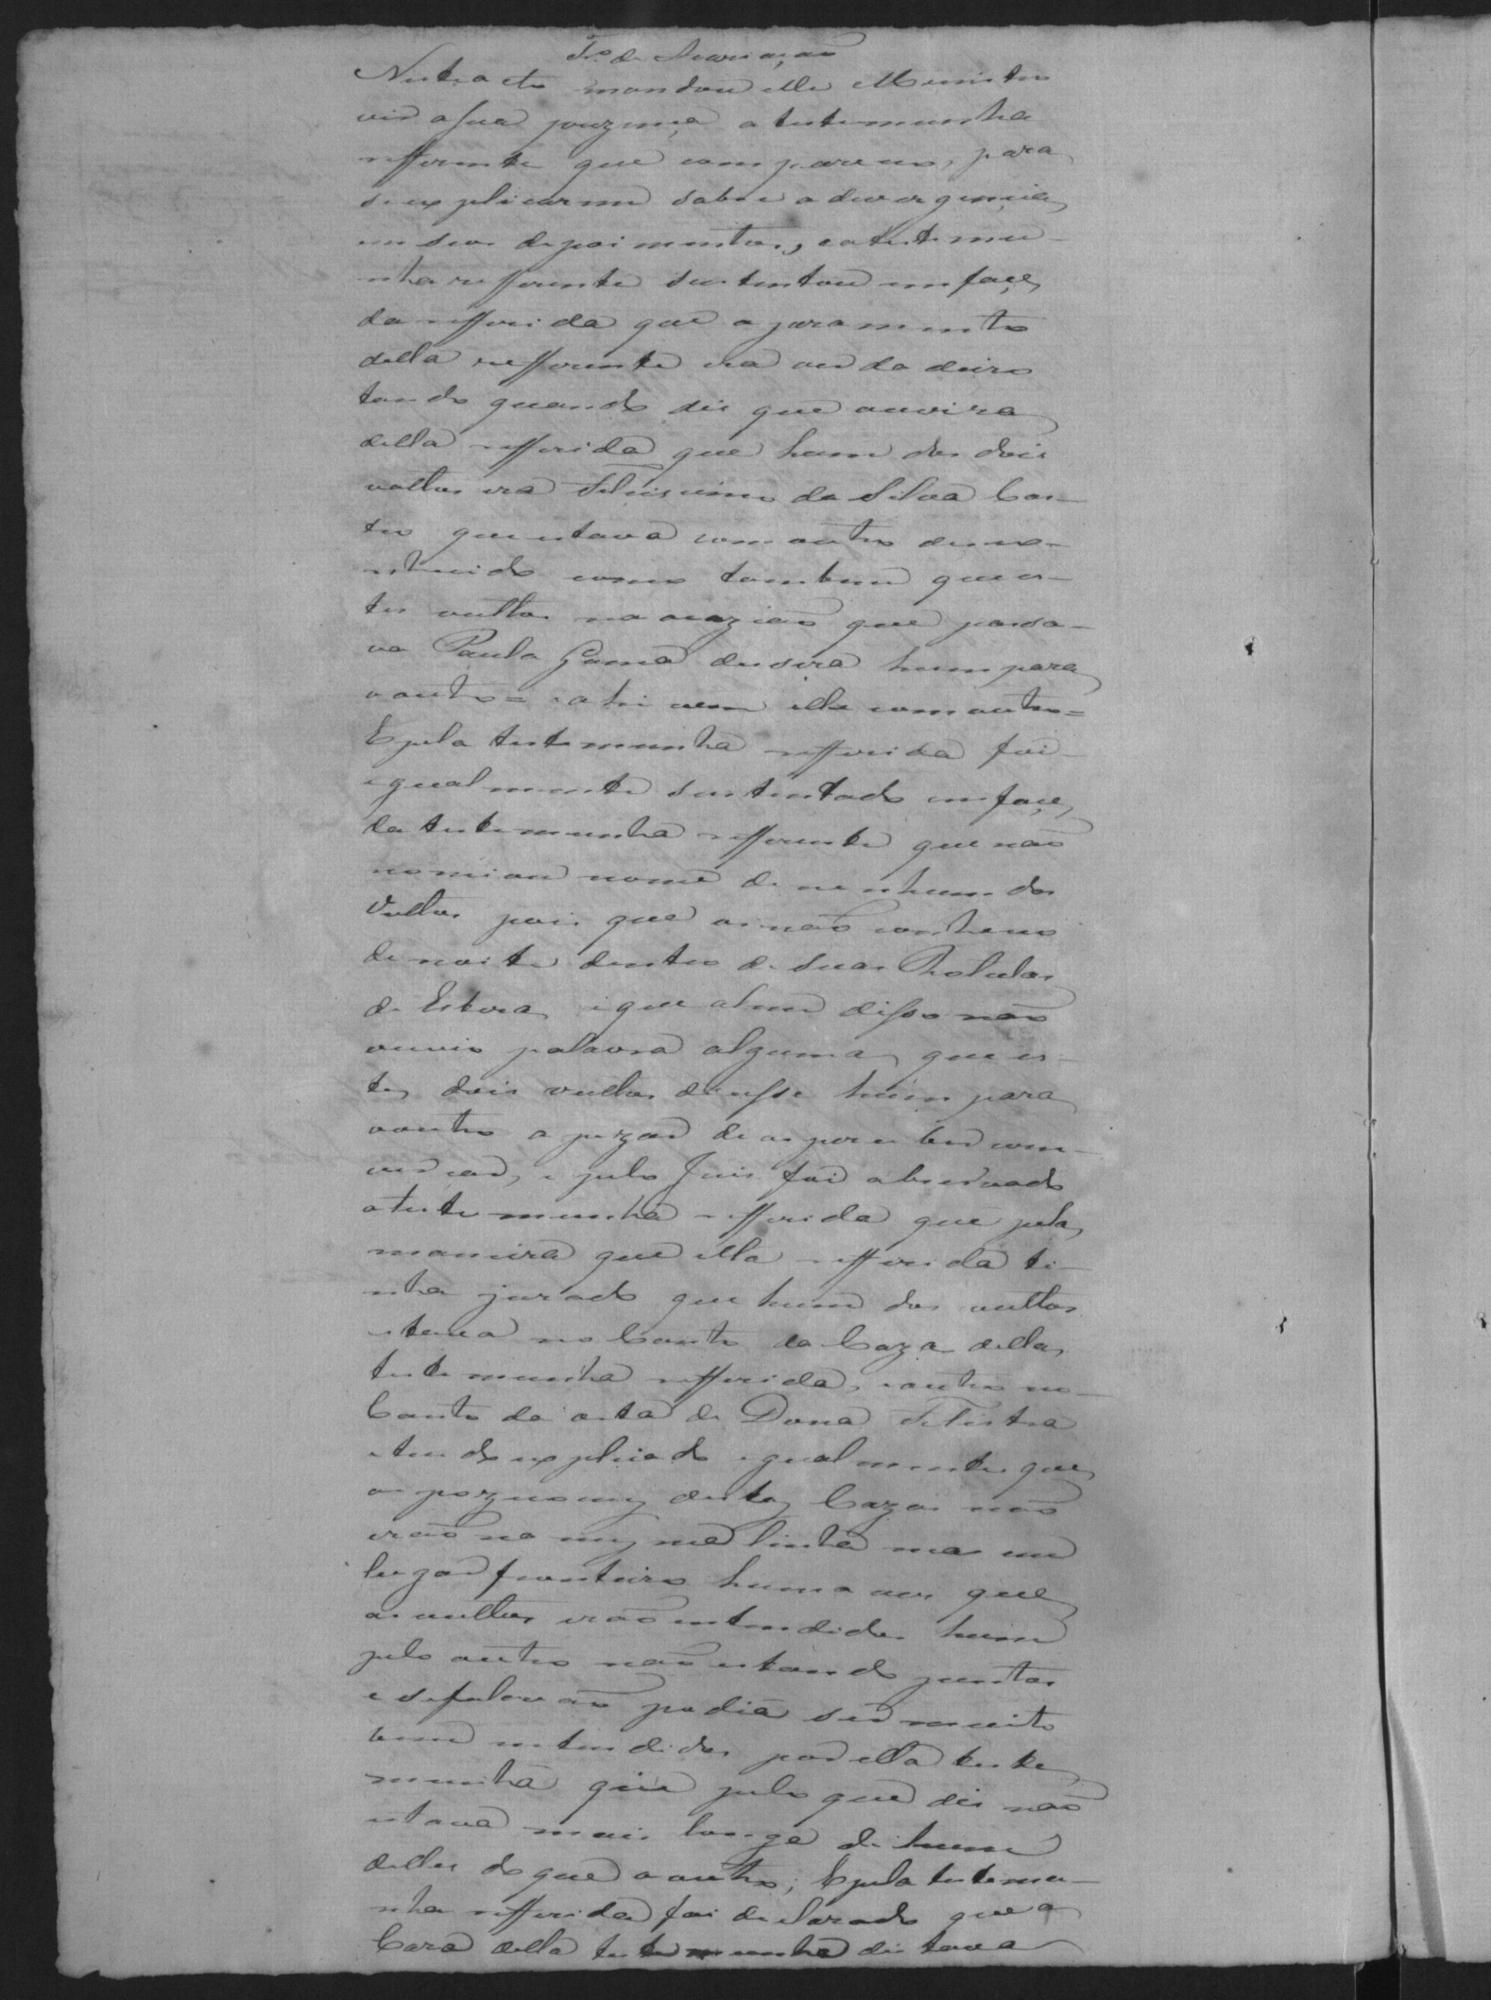 Tr.º de Acariação
Neste acto mandou elle Ministro
vir a sua prezença a testemunha
refferente que compareceo, para
se explicarem sobre a divergencia
em seos depoimentos, e a testemu-
nha refferente sustentou em façe
da refferida que o juramento
della refferente era verdadeiro
tanto quando dis que ouvira
della refferida que hum dos dois
vultos era Felicissimo da Silva Cas-
tro que estava com outro desco-
nhecido como tambem que es-
tes vultos na ocazião que passa-
va Paula Gama dissera hum para
o outro = ahi vem elle com outro =
E pela testemunha refferida foi
igualmente sustentado em façe
da testemunha refferente que não
nomiou nome de nenhum dos
Vultos pois que os não conheceo
de noite dentro de suas Rotulas
de Esteira, e que alem disso não
ouvio palavra alguma que es-
tes dois vultos dissesse hum para
o outro apezar de os perceber con-
versar, e pelo Juis foi observado
a testemunha refferida que pela
maneira que ella refferida ti-
nha jurado que hum dos vultos
estava no Canto da Caza della
testemunha refferida, e outro no
Canto da orta de Dona
e tendo explicado igualmente que
as destas Cazas não
erão na mesma linha mas em
lugar fronteiro huma ves que
os vultos erão entendidos hum
pelo outro não estando juntos
e se falavão podia ser muito
bem entendidos por ella teste
munha que pelo que dis não
estava mais longe de hum
delles do que o outro; E pela testemu-
nha refferida foi declarado que a
Caza della testemunha distava